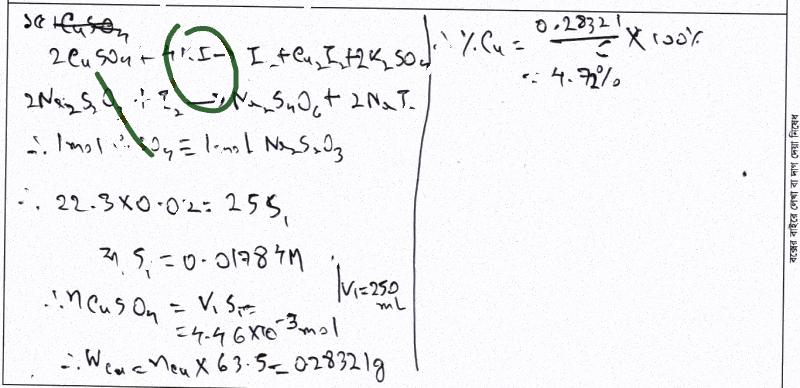 2CuSO₄ + 4KI → I₂ + Cu₂I₂ + 2K₂SO₄
2Na₂S₂O₃ + I₂ → Na₂S₄O₆ + 2NaI
∴ 1mol CuSO₄ ≡ 1mol Na₂S₂O₃
∴ 22.3×0.02 = 25S₁
S₁ = 0.01784M
∴ nCuSO₄ = V₁S₁ = | V₁=250 mL
= 4.46×10⁻³ mol
∴ W_Cu = n_Cu × 63.5 = 0.28321g
∴ %Cu = 0.28321 / × 100%
= 4.72%
বক্সের বাইরে লেখা বা দাগ দেয়া নিষেধ